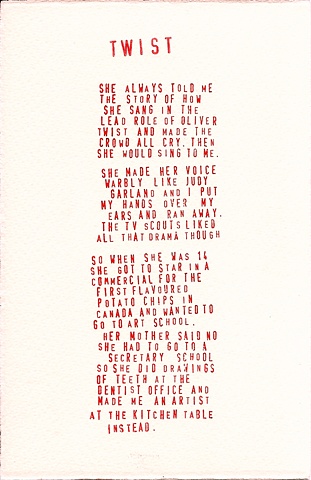 TWIST
SHE ALWAYS TOLD ME
THE STORY OF HOW
SHE SANG IN THE
LEAD ROLE OF OLIVER
TWIST AND MADE THE
CROWD ALL CRY. THEN
SHE WOULD SING TO ME.
SHE MADE HER VOICE
WARBLY LIKE JUDY
GARLAND AND I PUT
MY HANDS OVER MY
EARS AND RAN AWAY.
THE TV SCOUTS LIKED
ALL THAT DRAMA THOUGH
SO WHEN SHE WAS 14
SHE GOT TO STAR IN A
COMMERCIAL FOR THE
FIRST FLAVOURED
POTATO CHIPS IN
CANADA AND WANTED TO
GO TO ART SCHOOL.
HER MOTHER SAID NO
SHE HAD TO GO TO A
SECRETARY SCHOOL
SO SHE DID DRAWINGS
OF TEETH AT THE
DENTIST OFFICE AND
MADE ME AN ARTIST
AT THE KITCHEN TABLE
INSTEAD.